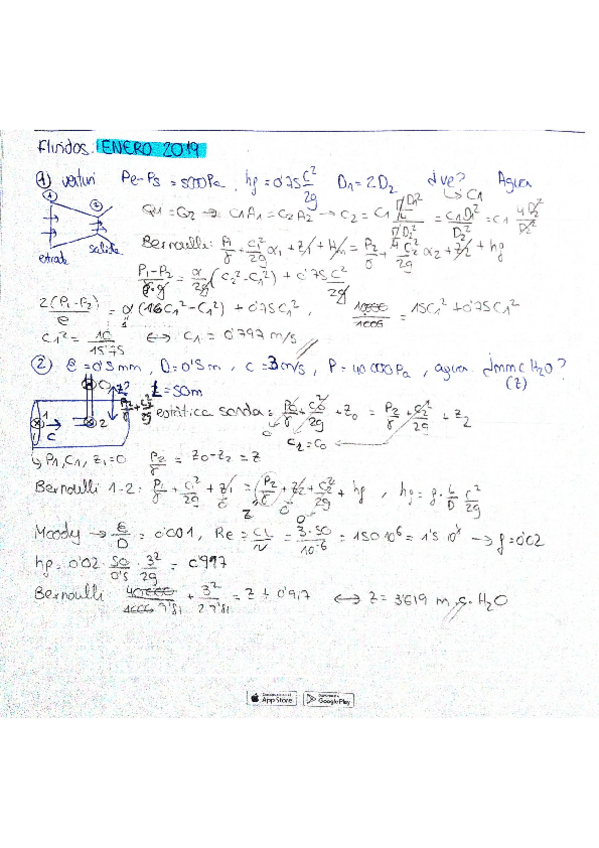 Fluidos. ENERO 2019
1) venturi Pe-Ps = 5000Pa, hg = 0'75 c²/2g D1 = 2D2 ¿ve? Agua
→ C1
1 2 entrada salida
Q1 = Q2 → C1A1 = C2A2 → C2 = C1
= C1 D1²/D2² = C1 4D2²/D2²
Bernoulli: P1/γ + C1²/2g α1 + z1 + Hm = P2/γ + C2²/2g α2 + z2 + hg
P1-P2/ρ·g = α/2g (C2² - C1²) + 0'75 C²/2g
2(P1-P2)/ρ = α(16C1² - C1²) + 0'75C1², 10000/1000 = 15C1² + 0'75C1²
C1² = 10/15'75 ⟷ C1 = 0'797 m/s
2) e = 0'5mm, D = 0'5m, c = 3m/s, P = 40 000Pa, agua. ¿mmc H2O?
(Z)
Z? L = 50m
P2/γ + C2²/2g
estática sonda = P0/γ + C0²/2g + z0 = P2/γ + C2²/2g + z2
C2 = C0
1 C 2
↳ P1, C1, z1 = 0 P2/γ = z0 - z2 = z
Bernoulli 1-2: P1/γ + C1²/2g + z1 = (P2/γ + z2 + C2²/2g + hg, hg = f · L/D C²/2g
Moody → e/D = 0'001, Re = CL/ν = 3·50/10^-6 = 150 10⁶ = 1'5 10⁸ → f = 0'02
hg = 0'02 · 50/0'5 · 3²/2g = 0'917
Bernoulli 40000/1000 9'81 + 3²/2 9'81 = z + 0'917 ⟷ z = 3'619 m.c.H2O
App Store
Google Play